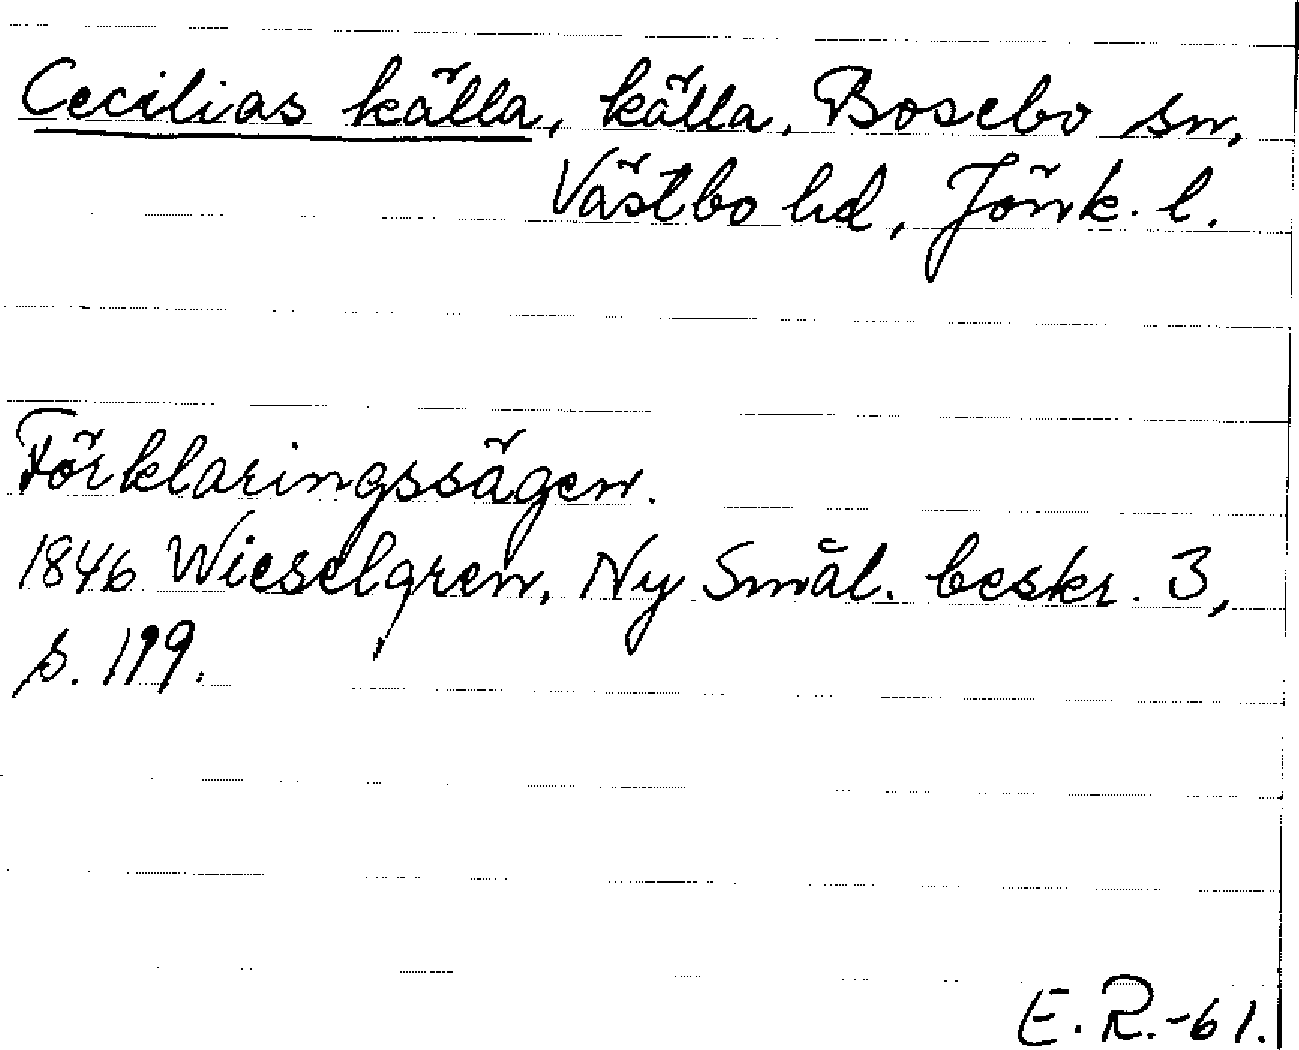 Cecilias källa, källa, Bosebo sn,
Västbo hd, Jönk. l.
Förklaringssägen.
1846 Wieselgren, Ny Smål. beskr. 3,
s. 199.
E. R.-61.